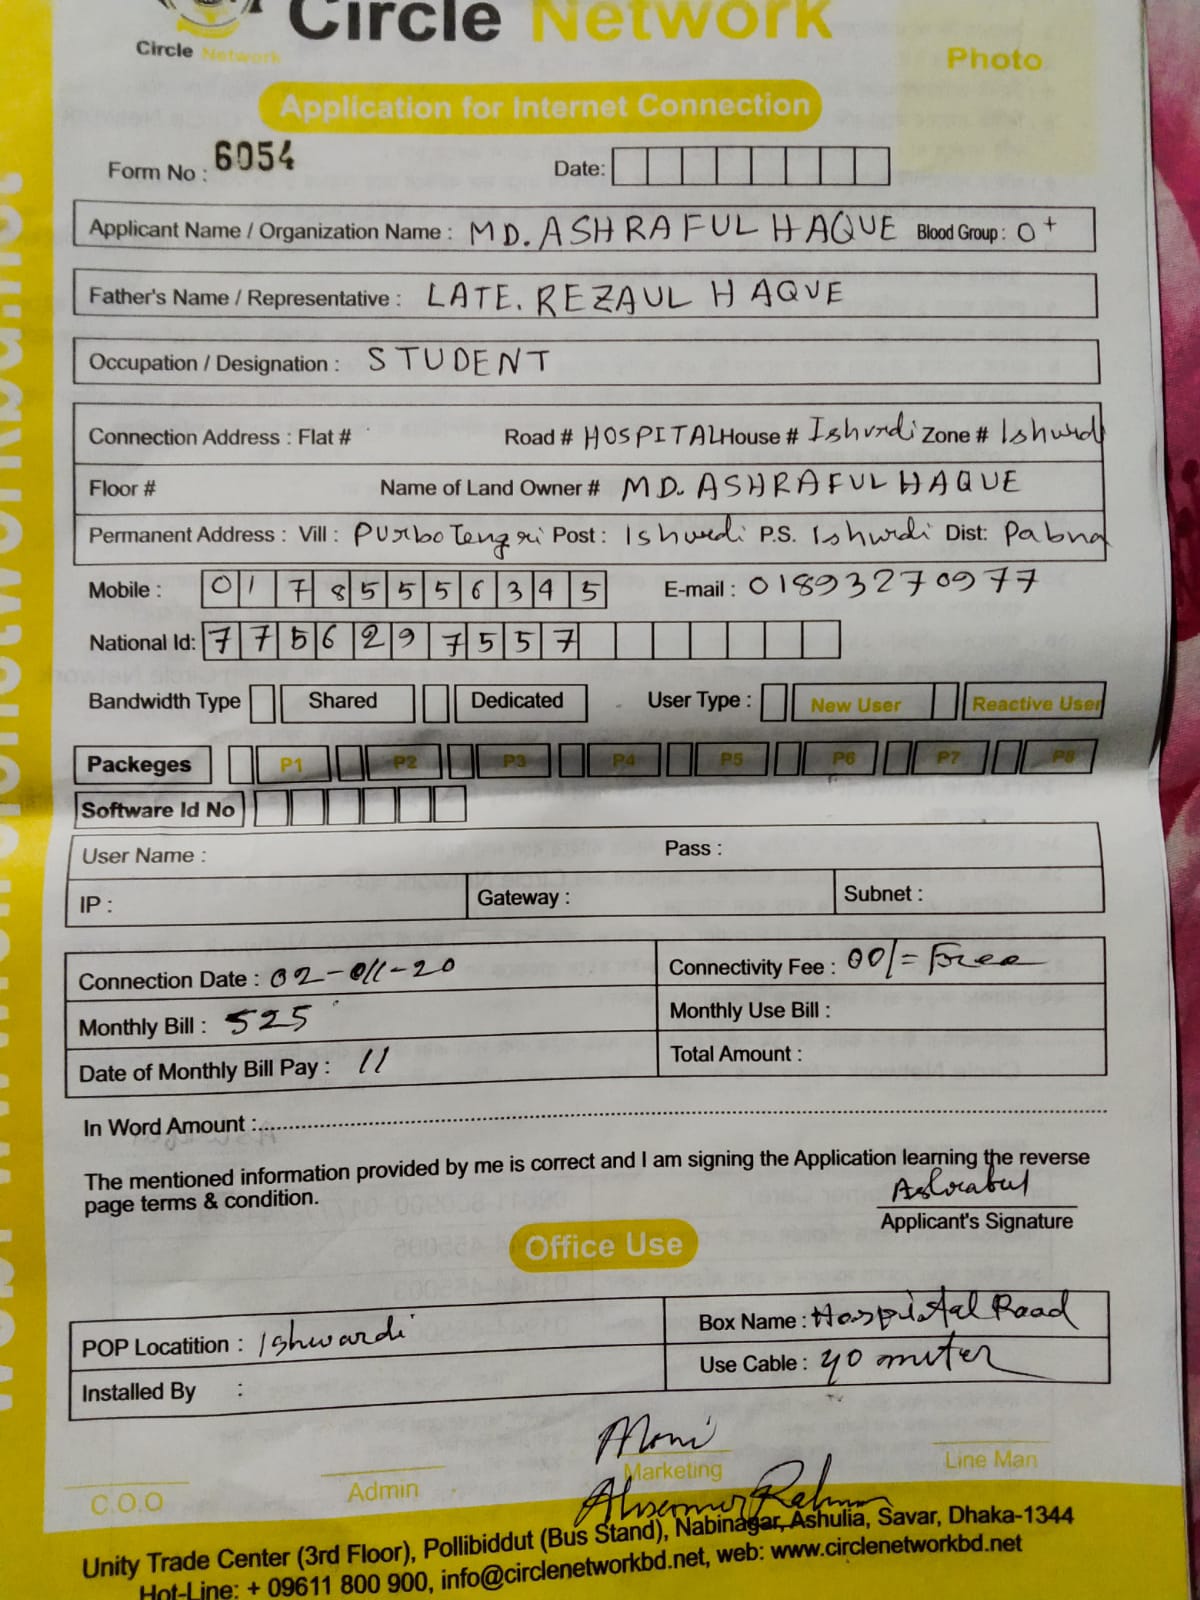 Circle Network
Circle Network
Photo
Application for Internet Connection
Form No : 6054 Date:
Applicant Name / Organization Name : MD. ASHRAFUL HAQUE Blood Group : O+
Father's Name / Representative : LATE. REZAUL HAQUE
Occupation / Designation : STUDENT
Connection Address : Flat # Road # HOSPITAL House # Ishurdi Zone # Ishurdi
Floor # Name of Land Owner # MD. ASHRAFUL HAQUE
Permanent Address : Vill : Purbo Tengri Post : Ishurdi P.S. Ishurdi Dist: Pabna
Mobile : 01785556345 E-mail : 01893270977
National Id: 7756297557
Bandwidth Type Shared Dedicated User Type : New User Reactive User
Packeges P1 P2 P3 P4 P5 P6 P7 P8
Software Id No
User Name : Pass :
IP : Gateway : Subnet :
Connection Date : 02-011-20 Connectivity Fee : 00/= Free
Monthly Bill : 525 Monthly Use Bill :
Date of Monthly Bill Pay : 11 Total Amount :
In Word Amount :
The mentioned information provided by me is correct and I am signing the Application learning the reverse
page terms & condition.
Ashraful
Applicant's Signature
Office Use
POP Locatition : Ishwardi Box Name : Hospital Road
Installed By : Use Cable : 40 meter
Moni
C.O.O Admin Marketing Line Man
Unity Trade Center (3rd Floor), Pollibiddut (Bus Stand), Nabinagar, Ashulia, Savar, Dhaka-1344
Hot-Line: + 09611 800 900, info@circlenetworkbd.net, web: www.circlenetworkbd.net